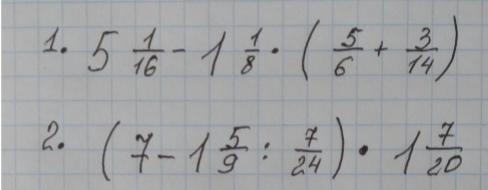 1. 5 1/16 - 1 1/8 · (5/6 + 3/14)
2. (7 - 1 5/9 : 7/24) · 1 7/20